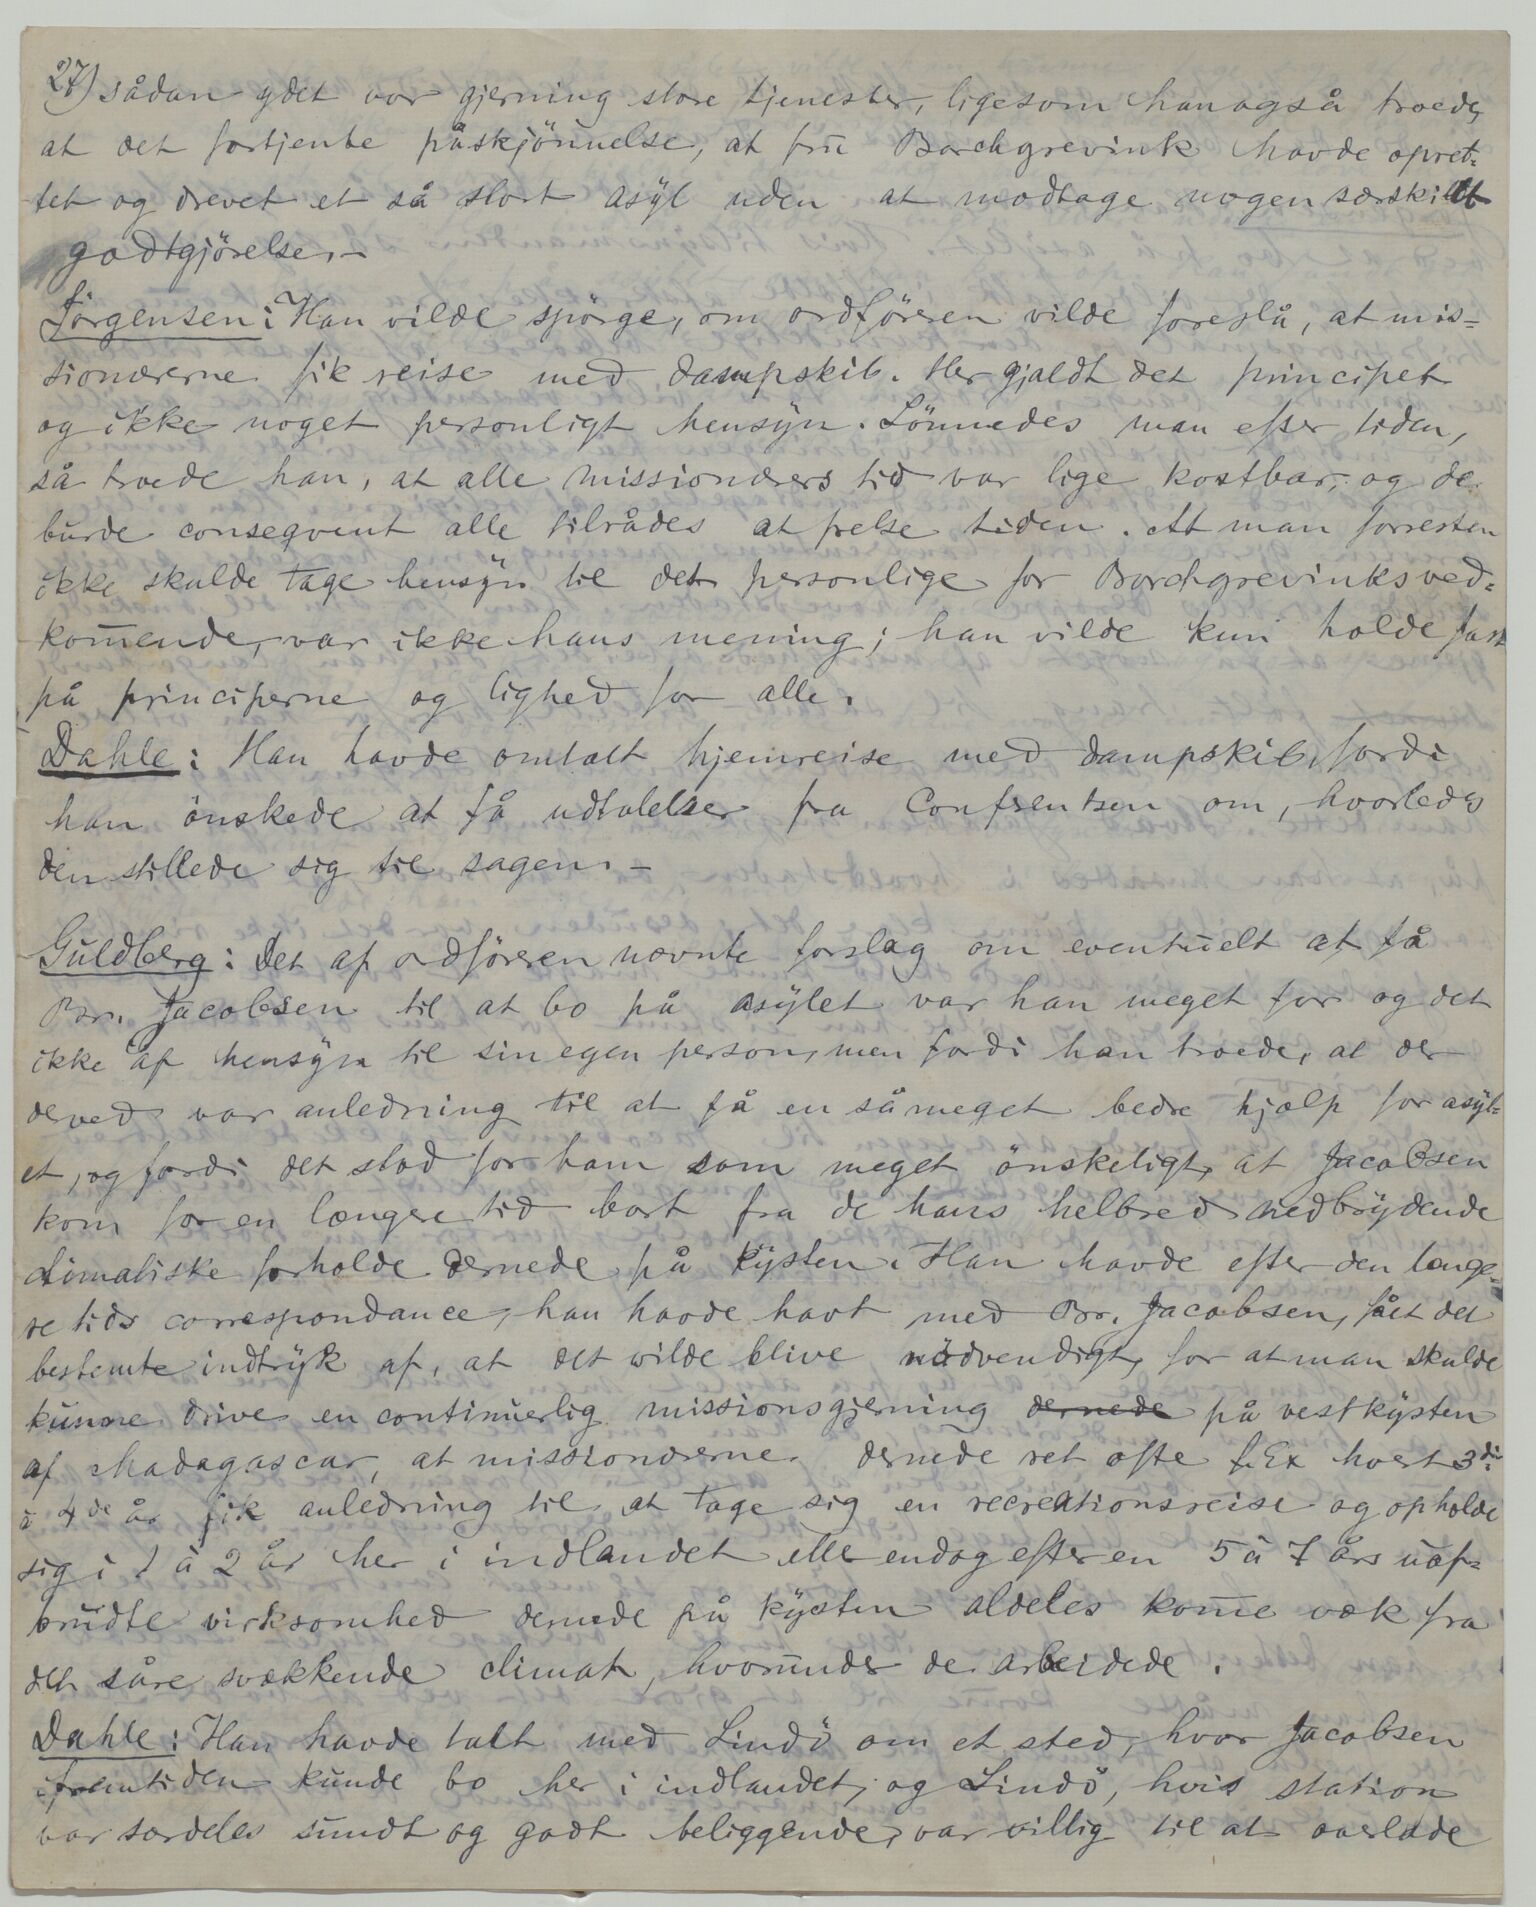 27) sådan ydet vor gjerning store tjenester, ligesom han også troede,
at det fortjente påskjönnelse, at frü Borchgrevink havde opret-
tet og drevet et så stort asÿl uden at modtage nogen særskildt
godtgjörelse.-
Jörgensen: Han vilde spörge, om ordföreren vilde foreslå, at mis=
sionærerne fik reise med dampskib. Her gjaldt det principet
og ikke noget personligt hensÿn. Lönnedes man efter tiden,
så troede han, at alle missionærers tid var lige kostbar, og de
burde conseqvent alle tilrådes at frelse tiden. At man forresten
ikke skulde tage hensÿn til det personlige for Borchgrevinks ved=
kom̄ende, var ikke hans mening; han vilde kun holde fast
på principerne og lighed for alle.
Dahle: Han havde omtalt hjemreise med dampskib, fordi
han önskede at få udtalelser fra Conferentsen om, hvorledes
den stillede sig til sagen.-
Guldberg: Det af ordföreren nævnte forslag om eventuelt at få
Br. Jacobsen til at bo på asÿlet var han meget for og det
ikke af hensÿn til sin egen person, men fordi han troede, at der
derved var anledning til at få en såmeget bedre hjælp for asÿl=
et, og fordi det stod for ham som meget önskeligt, at Jacobsen
kom for en længere tid bort fra de hans helbred nedbrÿdende
climatiske forholde dernede på kÿsten. Han havde efter den længe=
re tids correspondance, han havde havt med Br. Jacobsen, fået det
bestemte indtrÿk af, at det vilde blive nödvendigt, for at man skulde
kunne drive en continuerlig missionsgjerning dernede på vestkÿsten
af Madagascar, at missionærerne dernede ret ofte f. Ex hvert 3die
à 4de år fik anledning til at tage sig en recreationsreise og opholde
sig i 1 à 2 år her i indlandet eller endog efter en 5 à 7 års uaf=
brudte virksomhed dernede på kÿsten aldeles kom̄e væk fra
det såre svækkende climat, hvorunder de arbeidede.
Dahle: Han havde talt med Lindö om et sted, hvor Jacobsen
i fremtiden kunde bo her i indlandet, og Lindö, hvis station
var særdeles sundt og godt beliggende, var villig til at overlade